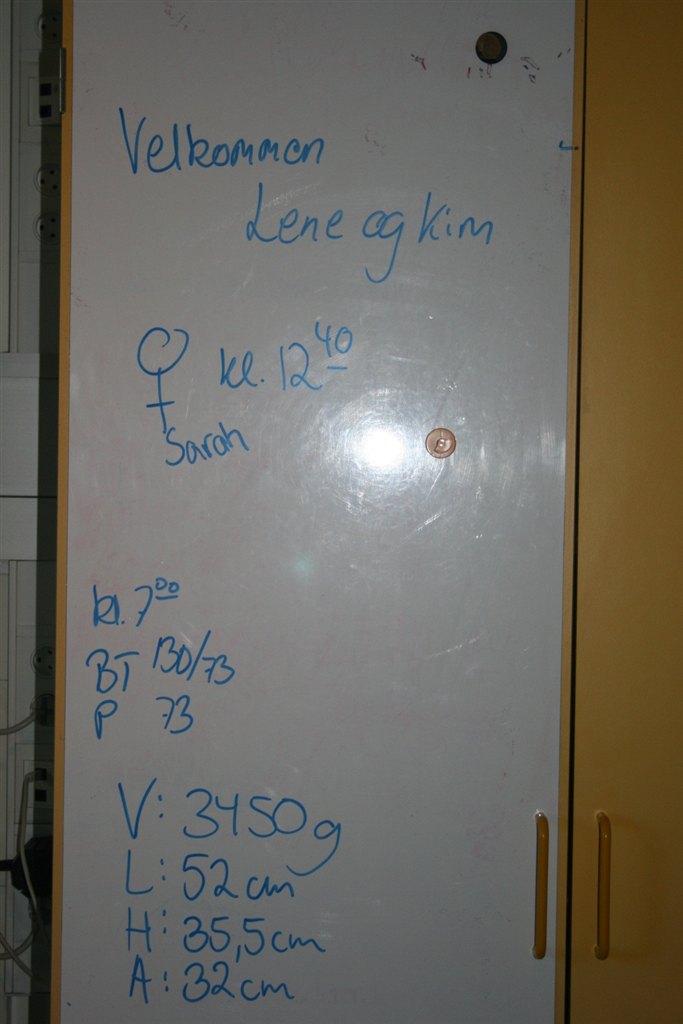 Velkommen
Lene og Kim
♀ kl. 12 40
Sarah
kl. 7 00
BT 130/73
P 73
V: 3450 g
L: 52 cm
H: 35,5 cm
A: 32 cm